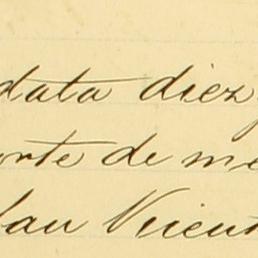 data diez
orte de me
lau Vicent